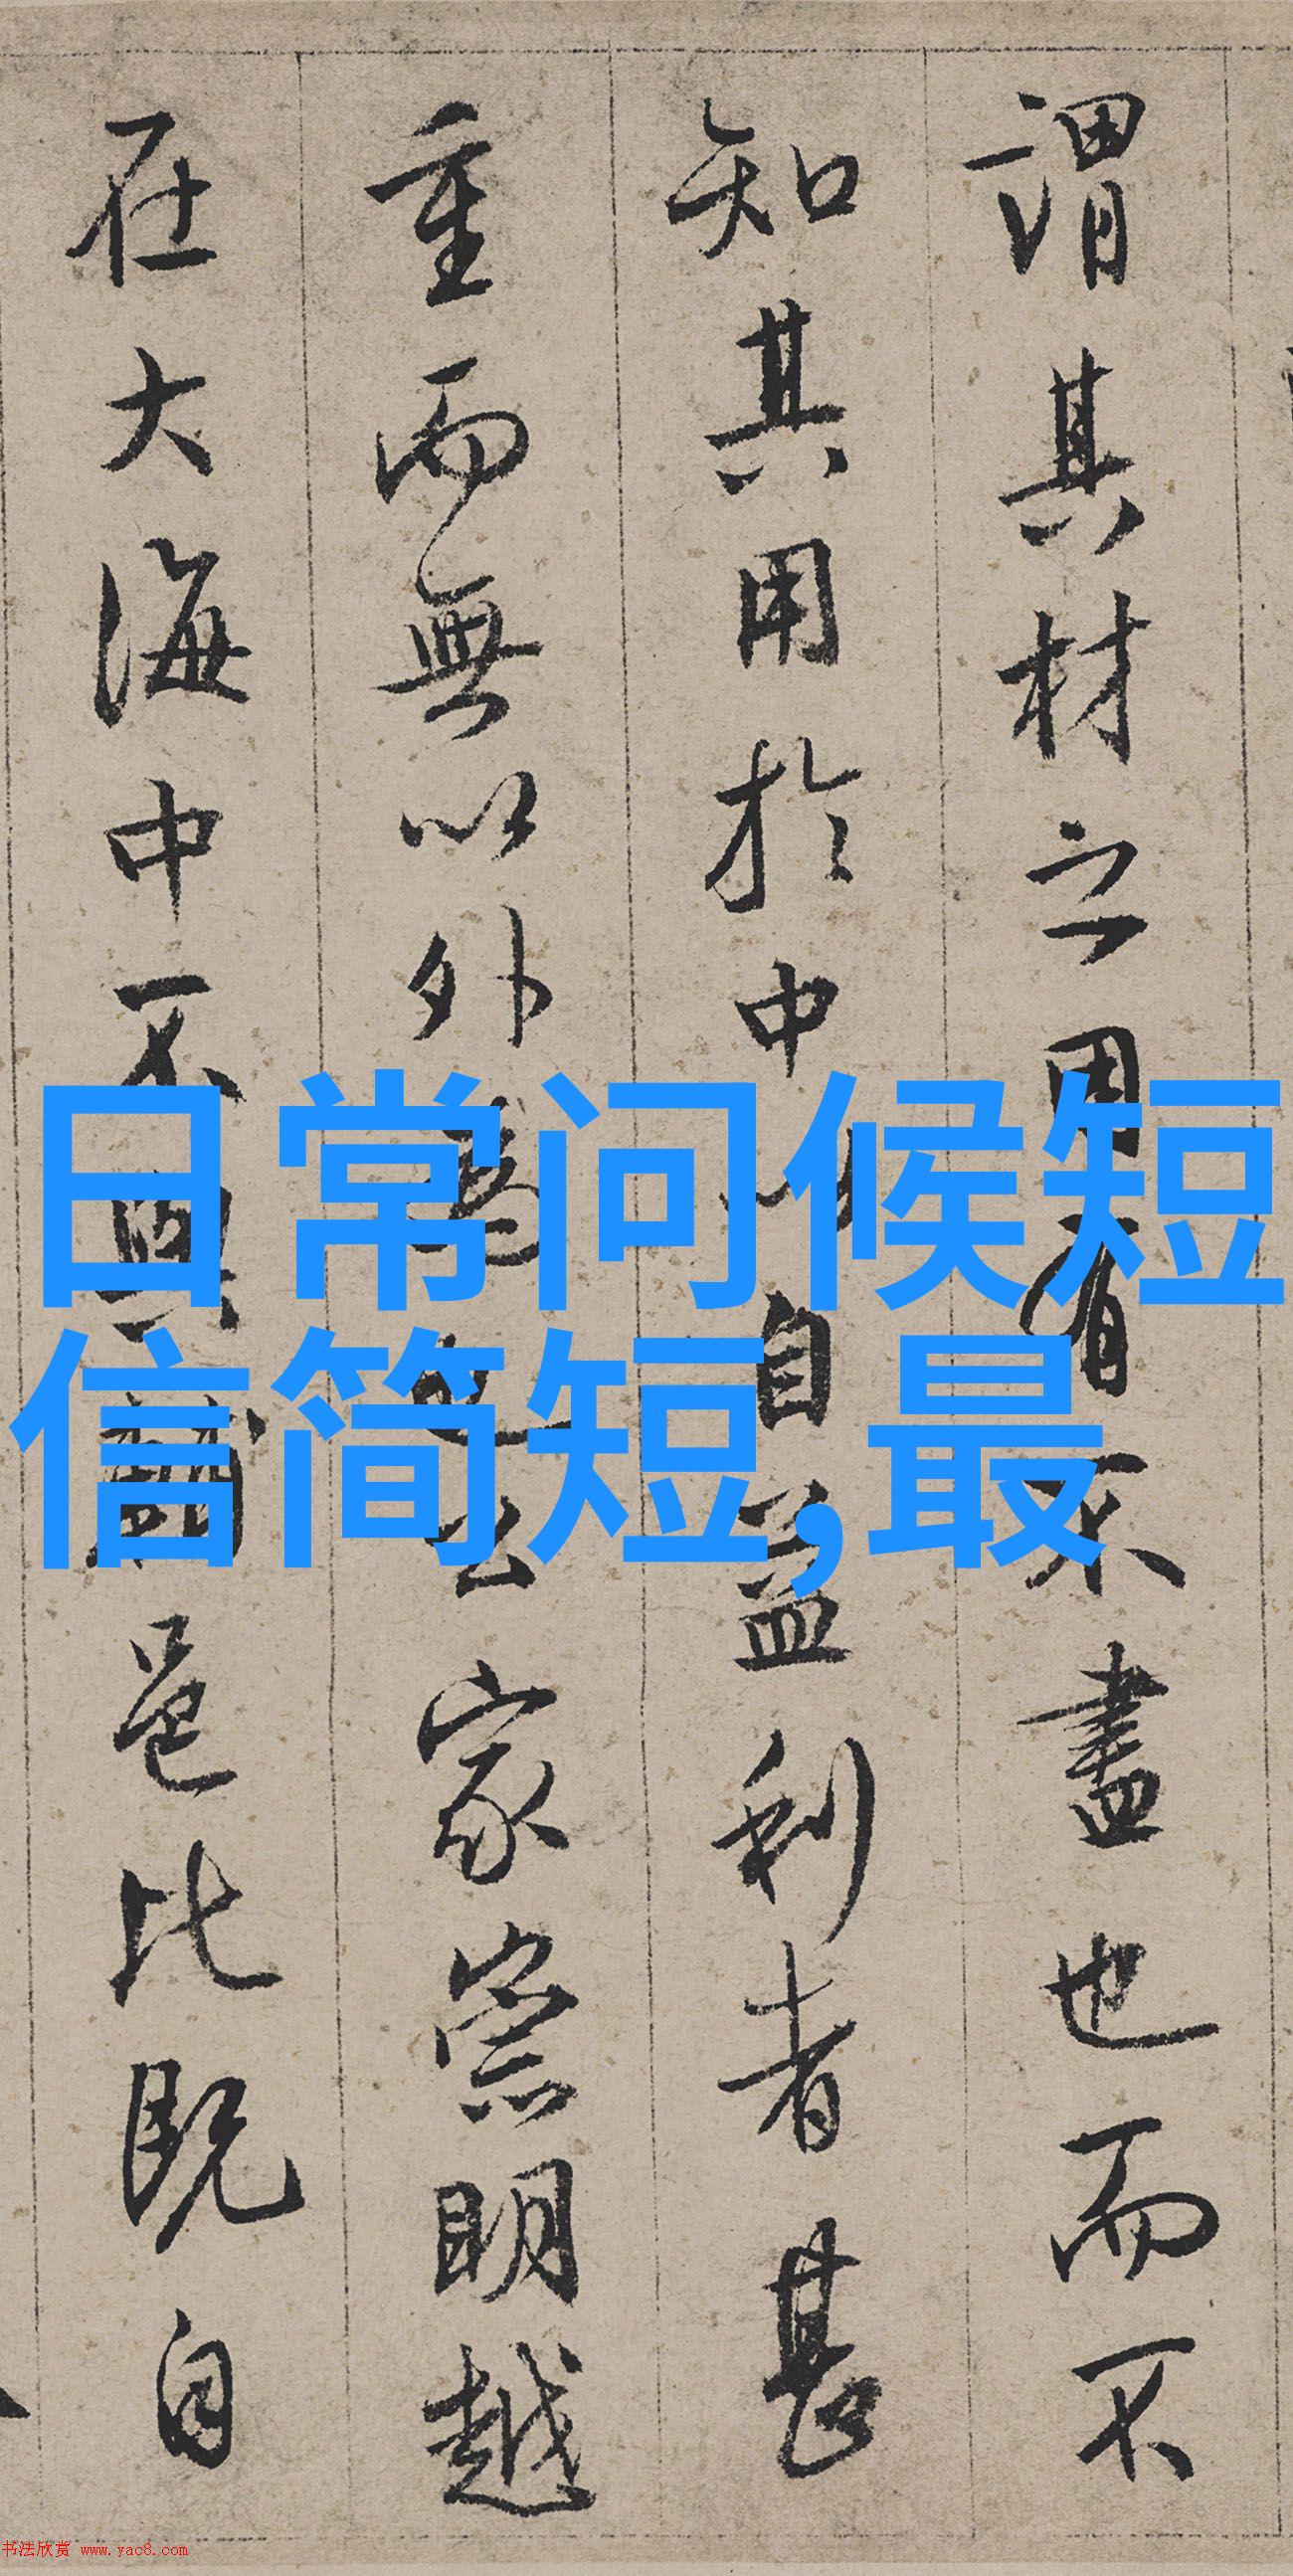 謂其材之用有不盡也而不
知其用於中以自益利者甚
重而無以外家崇明越
在大海中不與邑比既自
日常问候短
信简短,最
书法欣赏 www.yac8.com